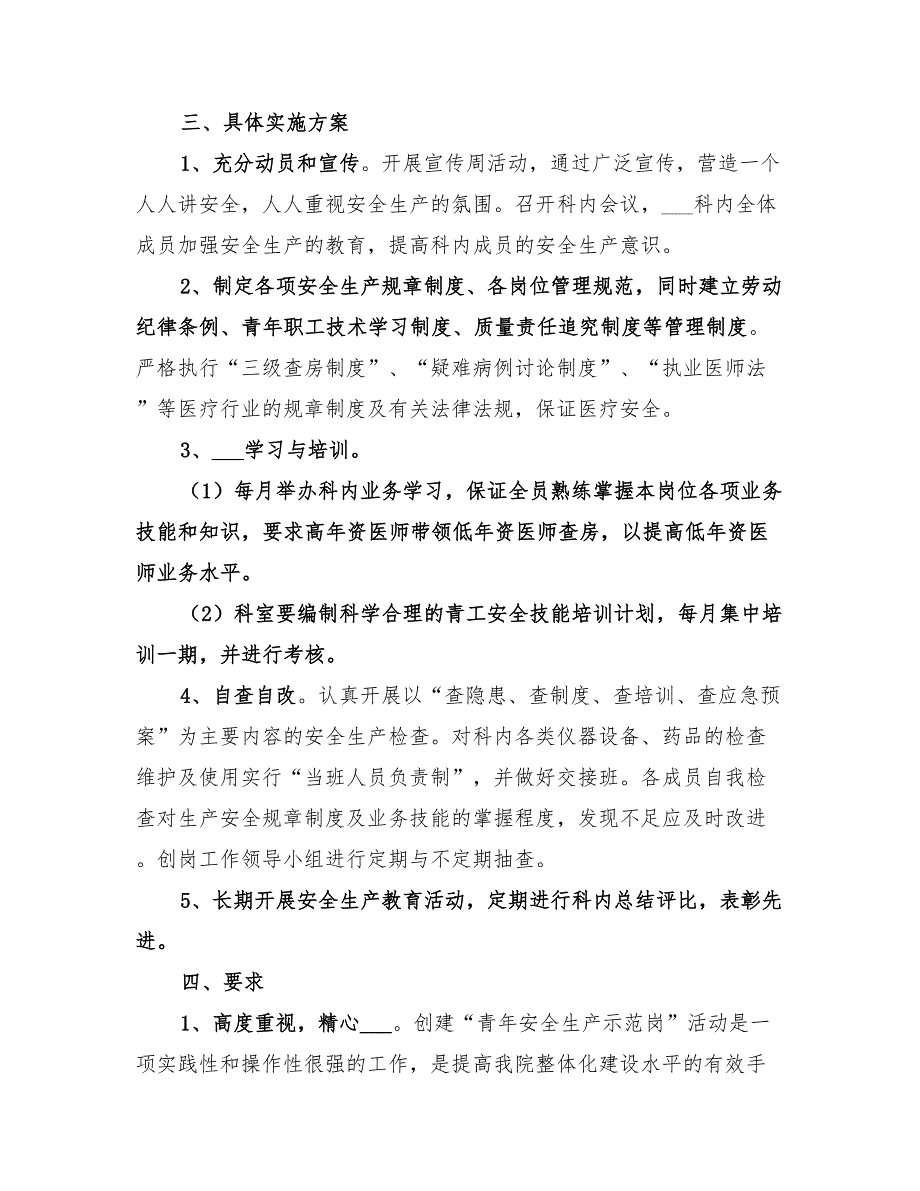 三、具体实施方案
1、充分动员和宣传。开展宣传周活动，通过广泛宣传，营造一个
人人讲安全，人人重视安全生产的氛围。召开科内会议，___科内全体
成员加强安全生产的教育，提高科内成员的安全生产意识。
2、制定各项安全生产规章制度、各岗位管理规范，同时建立劳动
纪律条例、青年职工技术学习制度、质量责任追究制度等管理制度。
严格执行“三级查房制度”、“疑难病例讨论制度”、“执业医师法
”等医疗行业的规章制度及有关法律法规，保证医疗安全。
3、___学习与培训。
（1）每月举办科内业务学习，保证全员熟练掌握本岗位各项业务
技能和知识，要求高年资医师带领低年资医师查房，以提高低年资医
师业务水平。
（2）科室要编制科学合理的青工安全技能培训计划，每月集中培
训一期，并进行考核。
4、自查自改。认真开展以“查隐患、查制度、查培训、查应急预
案”为主要内容的安全生产检查。对科内各类仪器设备、药品的检查
维护及使用实行“当班人员负责制”，并做好交接班。各成员自我检
查对生产安全规章制度及业务技能的掌握程度，发现不足应及时改进
。创岗工作领导小组进行定期与不定期抽查。
5、长期开展安全生产教育活动，定期进行科内总结评比，表彰先
进。
四、要求
1、高度重视，精心___。创建“青年安全生产示范岗”活动是一
项实践性和操作性很强的工作，是提高我院整体化建设水平的有效手